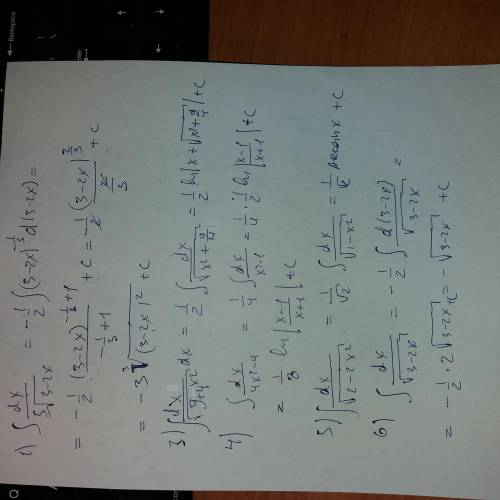 1) ∫ dx / ∛(3-2x) = -1/2 ∫ (3-2x)^(-1/3) d(3-2x) =
= -1/2 · (3-2x)^(-1/3+1) / (-1/3+1) + C = -1/2 (3-2x)^(2/3) / (2/3) + C
= -3 ∛(3-2x)² + C
3) ∫ dx / √(9+4x²) dx = 1/2 ∫ dx / √(x²+9/4) = 1/2 ln|x + √(x²+9/4)| + C
4) ∫ dx / 4x²-4 = 1/4 ∫ dx / x²-1 = 1/4 · 1/2 ln|x-1 / x+1| + C
= 1/8 ln|x-1 / x+1| + C
5) ∫ dx / √(2-2x²) = 1/√2 ∫ dx / √(1-x²) = 1/√2 arcsin x + C
6) ∫ dx / √(3-2x) = -1/2 ∫ d(3-2x) / √(3-2x) =
= -1/2 · 2 √(3-2x) + C = -√(3-2x) + C
Backspace